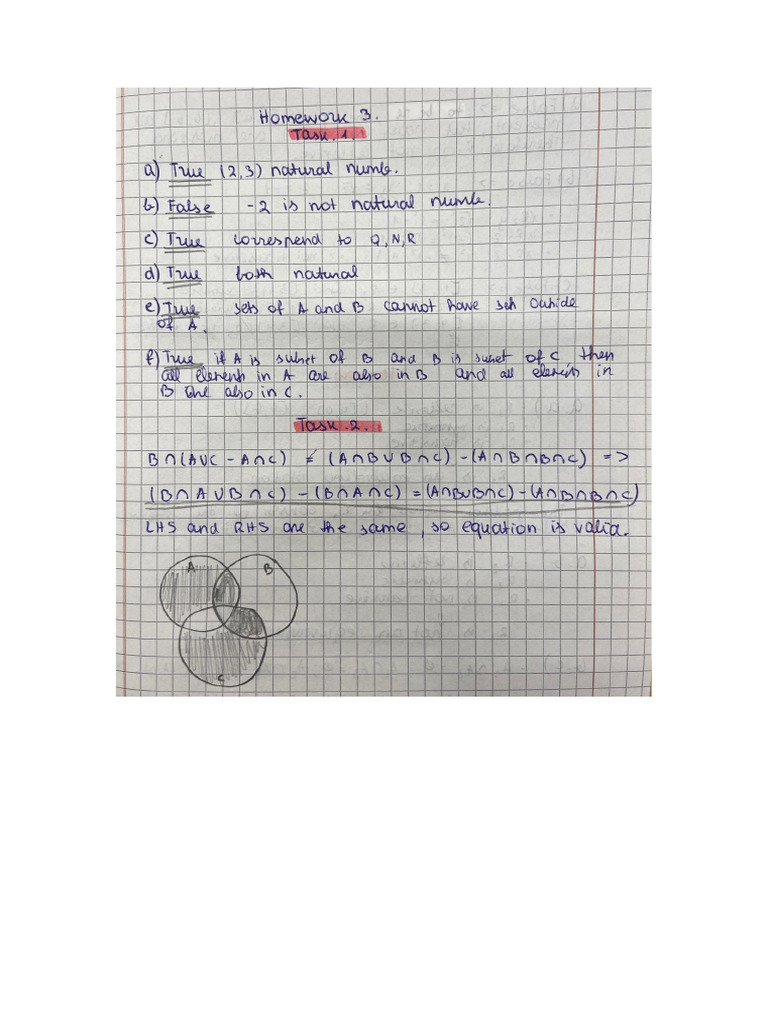 Homework 3.
Task.1.
a) True (2,3) natural numb.
b) False -2 is not natural numb.
c) True correspond to Q,N,R
d) True both natural
e) True sets of A and B cannot have seh ouside
of A.
f) True if A is subset of B and B is suset of C, then
all elements in A are also in B and all elements in
B are also in C.
Task.2.
B∩(A∪C - A∩C) = (A∩B∪B∩C) -(A∩B∩B∩C) =>
(B∩A∪B∩C) - (B∩A∩C) = (A∩B∪B∩C) - (A∩B∩B∩C)
LHS and RHS are the same, so equation is valid.
A B
C